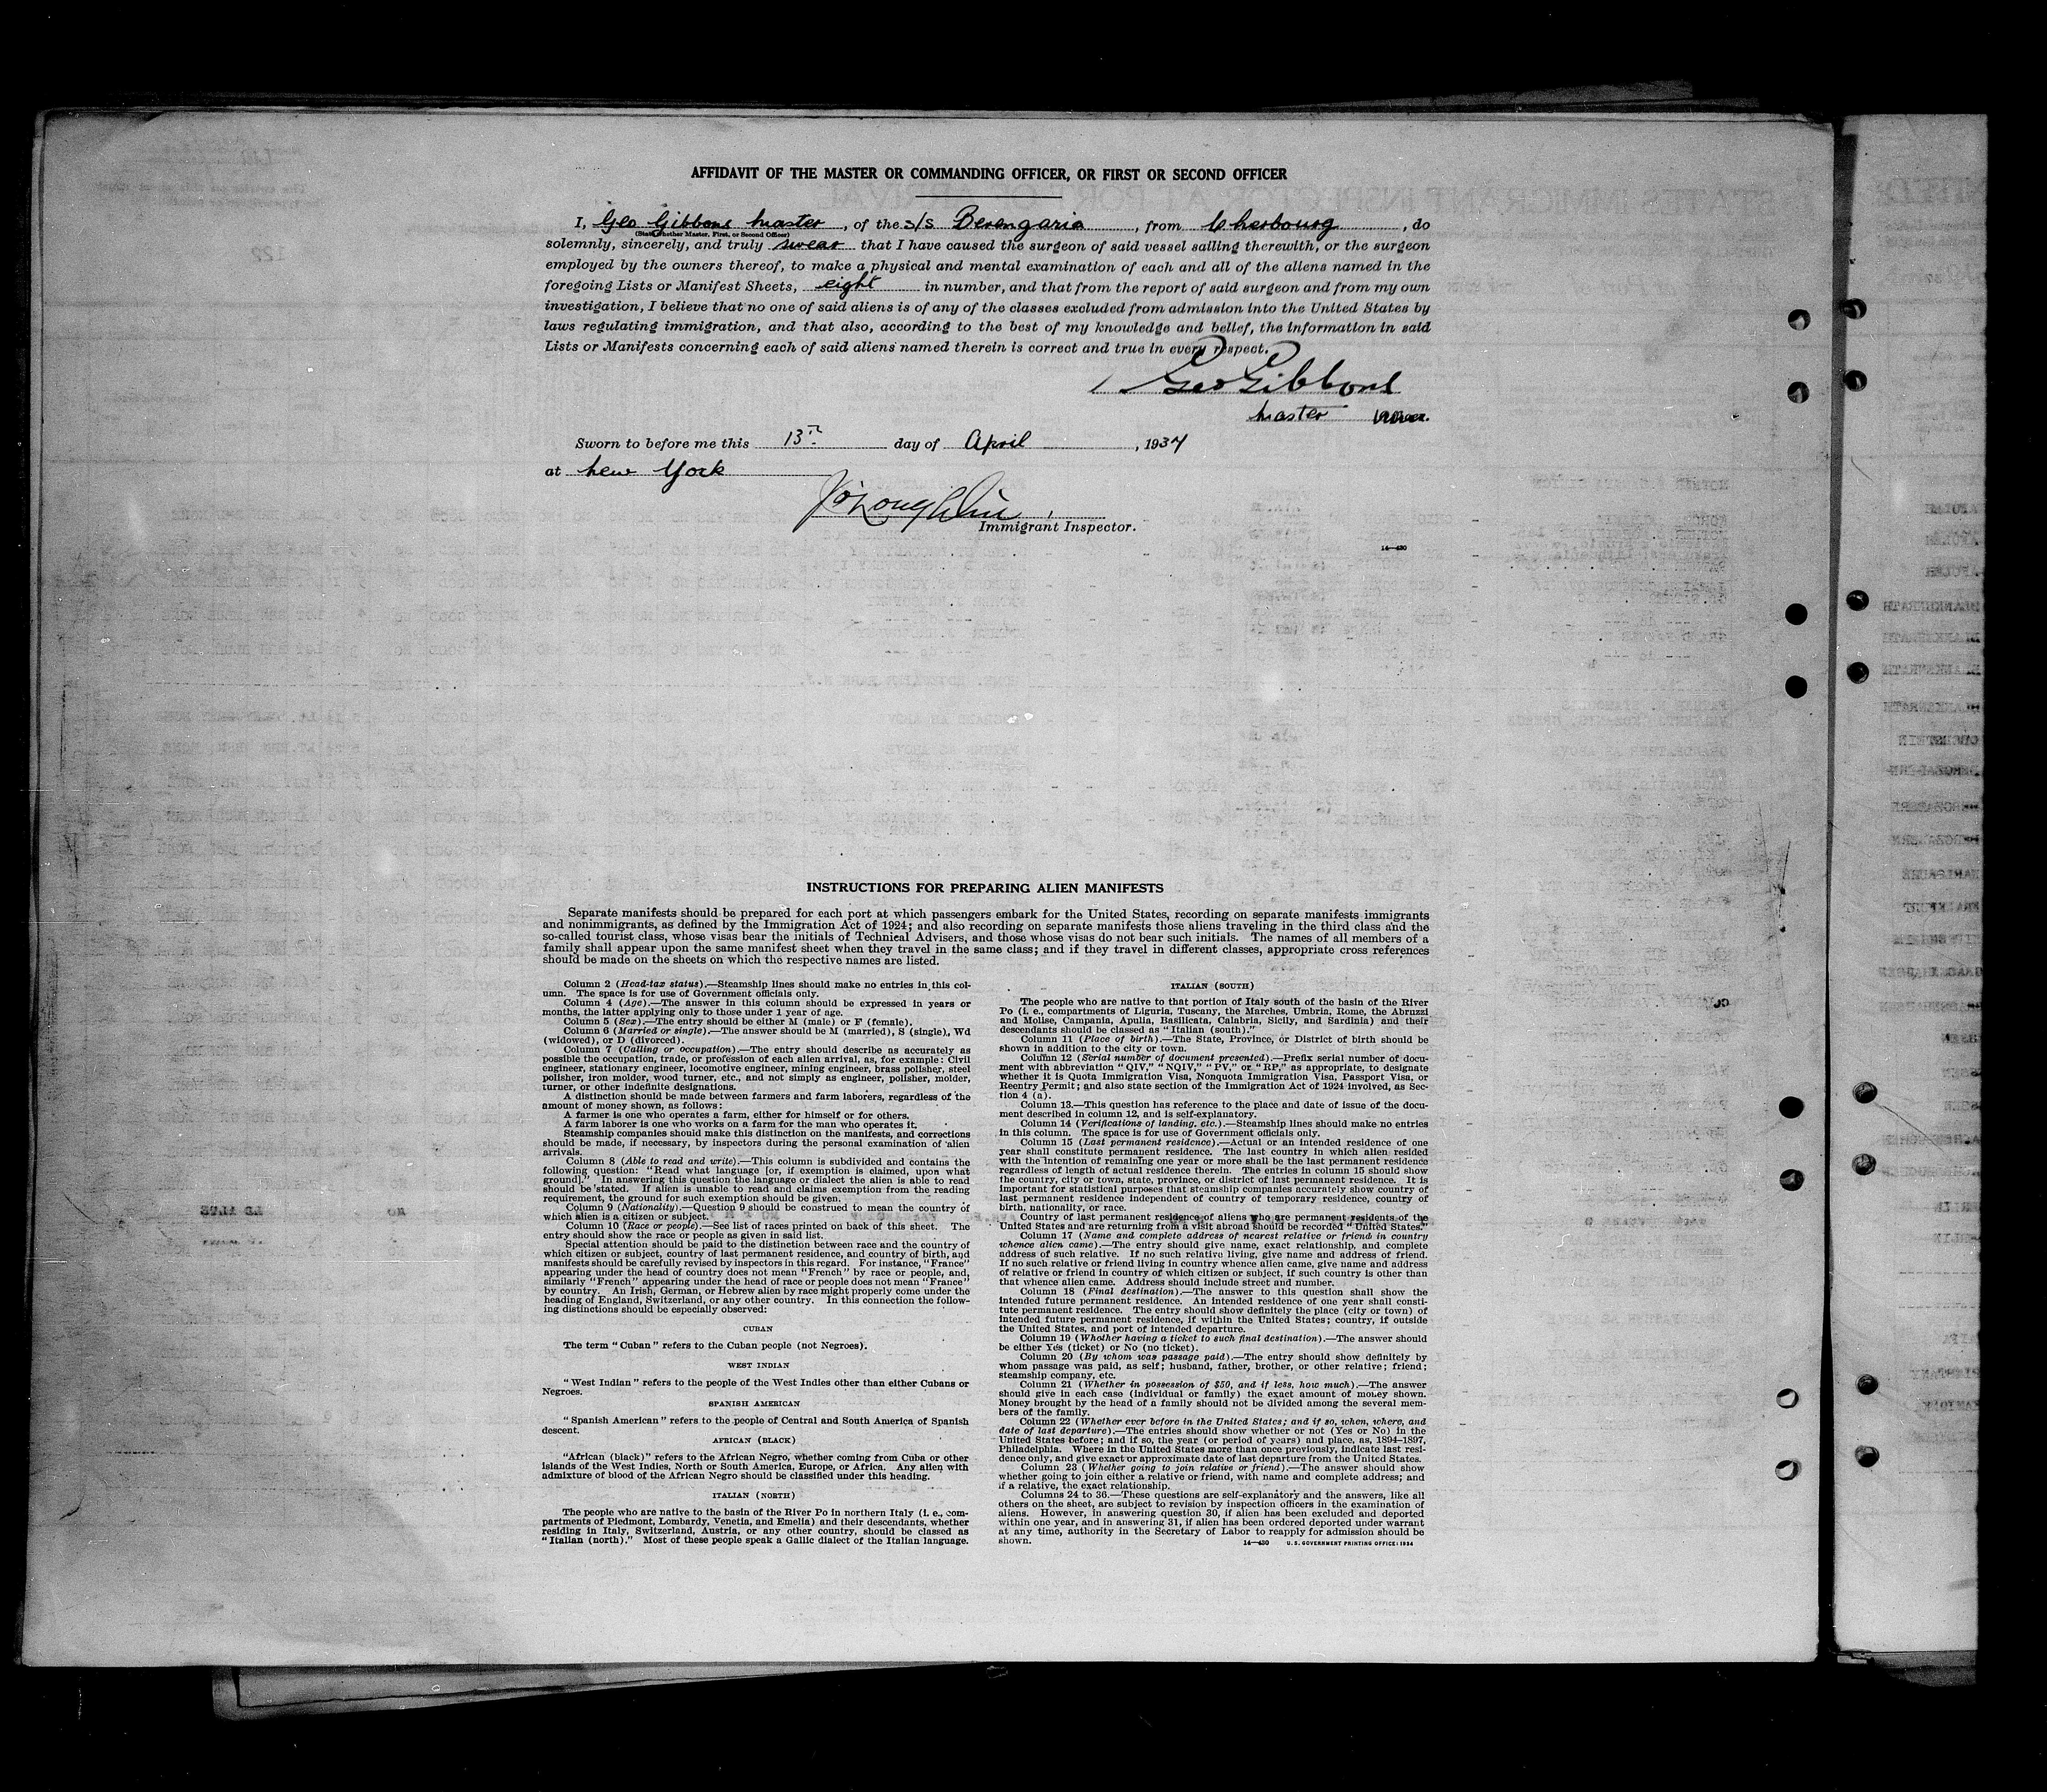 AFFIDAVIT OF THE MASTER OR COMMANDING OFFICER, OR FIRST OR SECOND OFFICER
I, Geo Gibbons Master, of the s/s Berengaria, from Cherbourg, do
(State whether Master, First, or Second Officer)
solemnly, sincerely, and truly swear that I have caused the surgeon of said vessel sailing therewith, or the surgeon
employed by the owners thereof, to make a physical and mental examination of each and all of the aliens named in the
foregoing Lists or Manifest Sheets, eight in number, and that from the report of said surgeon and from my own
investigation, I believe that no one of said aliens is of any of the classes excluded from admission into the United States by
laws regulating immigration, and that also, according to the best of my knowledge and belief, the information in said
Lists or Manifests concerning each of said aliens named therein is correct and true in every respect.
Geo Gibbons
Master Officer.
Sworn to before me this 13th day of April, 1937
at New York
Immigrant Inspector.
14—430
INSTRUCTIONS FOR PREPARING ALIEN MANIFESTS
Separate manifests should be prepared for each port at which passengers embark for the United States, recording on separate manifests immigrants
and nonimmigrants, as defined by the Immigration Act of 1924; and also recording on separate manifests those aliens traveling in the third class and the
so-called tourist class, whose visas bear the initials of Technical Advisers, and those whose visas do not bear such initials. The names of all members of a
family shall appear upon the same manifest sheet when they travel in the same class; and if they travel in different classes, appropriate cross references
should be made on the sheets on which the respective names are listed.
Column 2 (Head-tax status).—Steamship lines should make no entries in this col-
umn. The space is for use of Government officials only.
Column 4 (Age).—The answer in this column should be expressed in years or
months, the latter applying only to those under 1 year of age.
Column 5 (Sex).—The entry should be either M (male) or F (female).
Column 6 (Married or single).—The answer should be M (married), S (single), Wd
(widowed), or D (divorced).
Column 7 (Calling or occupation).—The entry should describe as accurately as
possible the occupation, trade, or profession of each alien arrival, as, for example: Civil
engineer, stationary engineer, locomotive engineer, mining engineer, brass polisher, steel
polisher, iron molder, wood turner, etc., and not simply as engineer, polisher, molder,
turner, or other indefinite designations.
A distinction should be made between farmers and farm laborers, regardless of the
amount of money shown, as follows:
A farmer is one who operates a farm, either for himself or for others.
A farm laborer is one who works on a farm for the man who operates it.
Steamship companies should make this distinction on the manifests, and corrections
should be made, if necessary, by inspectors during the personal examination of alien
arrivals.
Column 8 (Able to read and write).—This column is subdivided and contains the
following question: "Read what language [or, if exemption is claimed, upon what
ground]." In answering this question the language or dialect the alien is able to read
should be stated. If alien is unable to read and claims exemption from the reading
requirement, the ground for such exemption should be given.
Column 9 (Nationality).—Question 9 should be construed to mean the country of
which alien is a citizen or subject.
Column 10 (Race or people).—See list of races printed on back of this sheet. The
entry should show the race or people as given in said list.
Special attention should be paid to the distinction between race and the country of
which citizen or subject, country of last permanent residence, and country of birth, and
manifests should be carefully revised by inspectors in this regard. For instance, "France"
appearing under the head of country does not mean "French" by race or people, and,
similarly "French" appearing under the head of race or people does not mean "France"
by country. An Irish, German, or Hebrew alien by race might properly come under the
heading of England, Switzerland, or any other country. In this connection the follow-
ing distinctions should be especially observed:
CUBAN
The term "Cuban" refers to the Cuban people (not Negroes).
WEST INDIAN
"West Indian" refers to the people of the West Indies other than either Cubans or
Negroes.
SPANISH AMERICAN
"Spanish American" refers to the people of Central and South America of Spanish
descent.
AFRICAN (BLACK)
"African (black)" refers to the African Negro, whether coming from Cuba or other
islands of the West Indies, North or South America, Europe, or Africa. Any alien with
admixture of blood of the African Negro should be classified under this heading.
ITALIAN (NORTH)
The people who are native to the basin of the River Po in northern Italy (i. e., com-
partments of Piedmont, Lombardy, Venetia, and Emelia) and their descendants, whether
residing in Italy, Switzerland, Austria, or any other country, should be classed as
"Italian (north)." Most of these people speak a Gallic dialect of the Italian language.
ITALIAN (SOUTH)
The people who are native to that portion of Italy south of the basin of the River
Po (i. e., compartments of Liguria, Tuscany, the Marches, Umbria, Rome, the Abruzzi
and Molise, Campania, Apulia, Basilicata, Calabria, Sicily, and Sardinia) and their
descendants should be classed as "Italian (south)."
Column 11 (Place of birth).—The State, Province, or District of birth should be
shown in addition to the city or town.
Column 12 (Serial number of document presented).—Prefix serial number of docu-
ment with abbreviation "QIV," "NQIV," "PV," or "RP," as appropriate, to designate
whether it is Quota Immigration Visa, Nonquota Immigration Visa, Passport Visa, or
Reentry Permit; and also state section of the Immigration Act of 1924 involved, as Sec-
tion 4 (a).
Column 13.—This question has reference to the place and date of issue of the docu-
ment described in column 12, and is self-explanatory.
Column 14 (Verifications of landing, etc.).—Steamship lines should make no entries
in this column. The space is for use of Government officials only.
Column 15 (Last permanent residence).—Actual or an intended residence of one
year shall constitute permanent residence. The last country in which alien resided
with the intention of remaining one year or more shall be the last permanent residence
regardless of length of actual residence therein. The entries in column 15 should show
the country, city or town, state, province, or district of last permanent residence. It is
important for statistical purposes that steamship companies accurately show country of
last permanent residence independent of country of temporary residence, country of
birth, nationality, or race.
Country of last permanent residence of aliens who are permanent residents of the
United States and are returning from a visit abroad should be recorded "United States."
Column 17 (Name and complete address of nearest relative or friend in country
whence alien came).—The entry should give name, exact relationship, and complete
address of such relative. If no such relative living, give name and address of friend.
If no such relative or friend living in country whence alien came, give name and address
of relative or friend in country of which citizen or subject, if such country is other than
that whence alien came. Address should include street and number.
Column 18 (Final destination).—The answer to this question shall show the
intended future permanent residence. An intended residence of one year shall consti-
tute permanent residence. The entry should show definitely the place (city or town) of
intended future permanent residence, if within the United States; country, if outside
the United States, and port of intended departure.
Column 19 (Whether having a ticket to such final destination).—The answer should
be either Yes (ticket) or No (no ticket).
Column 20 (By whom was passage paid).—The entry should show definitely by
whom passage was paid, as self; husband, father, brother, or other relative; friend;
steamship company, etc.
Column 21 (Whether in possession of $50, and if less, how much).—The answer
should give in each case (individual or family) the exact amount of money shown.
Money brought by the head of a family should not be divided among the several mem-
bers of the family.
Column 22 (Whether ever before in the United States; and if so, when, where, and
date of last departure).—The entries should show whether or not (Yes or No) in the
United States before; and if so, the year (or period of years) and place, as, 1894–1897,
Philadelphia. Where in the United States more than once previously, indicate last resi-
dence only, and give exact or approximate date of last departure from the United States.
Column 23 (Whether going to join relative or friend).—The answer should show
whether going to join either a relative or friend, with name and complete address; and
if a relative, the exact relationship.
Columns 24 to 36.—These questions are self-explanatory and the answers, like all
others on the sheet, are subject to revision by inspection officers in the examination of
aliens. However, in answering question 30, if alien has been excluded and deported
within one year, and in answering 31, if alien has been ordered deported under warrant
at any time, authority in the Secretary of Labor to reapply for admission should be
shown.
14—430 U. S. GOVERNMENT PRINTING OFFICE: 1934